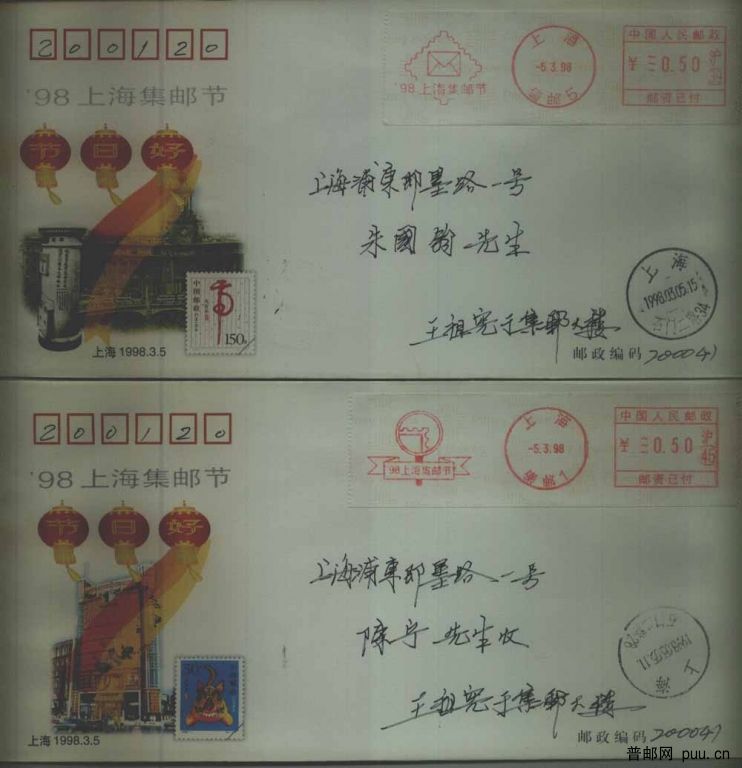 200120
'98上海集邮节
节日好
'98上海集邮节
上海
-5.3.98
中国人民邮政
¥ 三0.50
邮资已付
上海浦东即墨路一号
朱國
先生
上海
1998.03.05.15
中国邮政
150分
上海 1998.3.5
王祖宪于集邮大楼
邮政编码 200041
200120
'98上海集邮节
节日好
'98上海集邮节
上海
-5.3.98
中国人民邮政
¥ 三0.50
沪
45
邮资已付
上海浦东即墨路一号
陈宁 先生收
上海
1998.03.05.11
王祖宪于集邮大楼
上海 1998.3.5
邮政编码 200041
普邮网 puu.cn